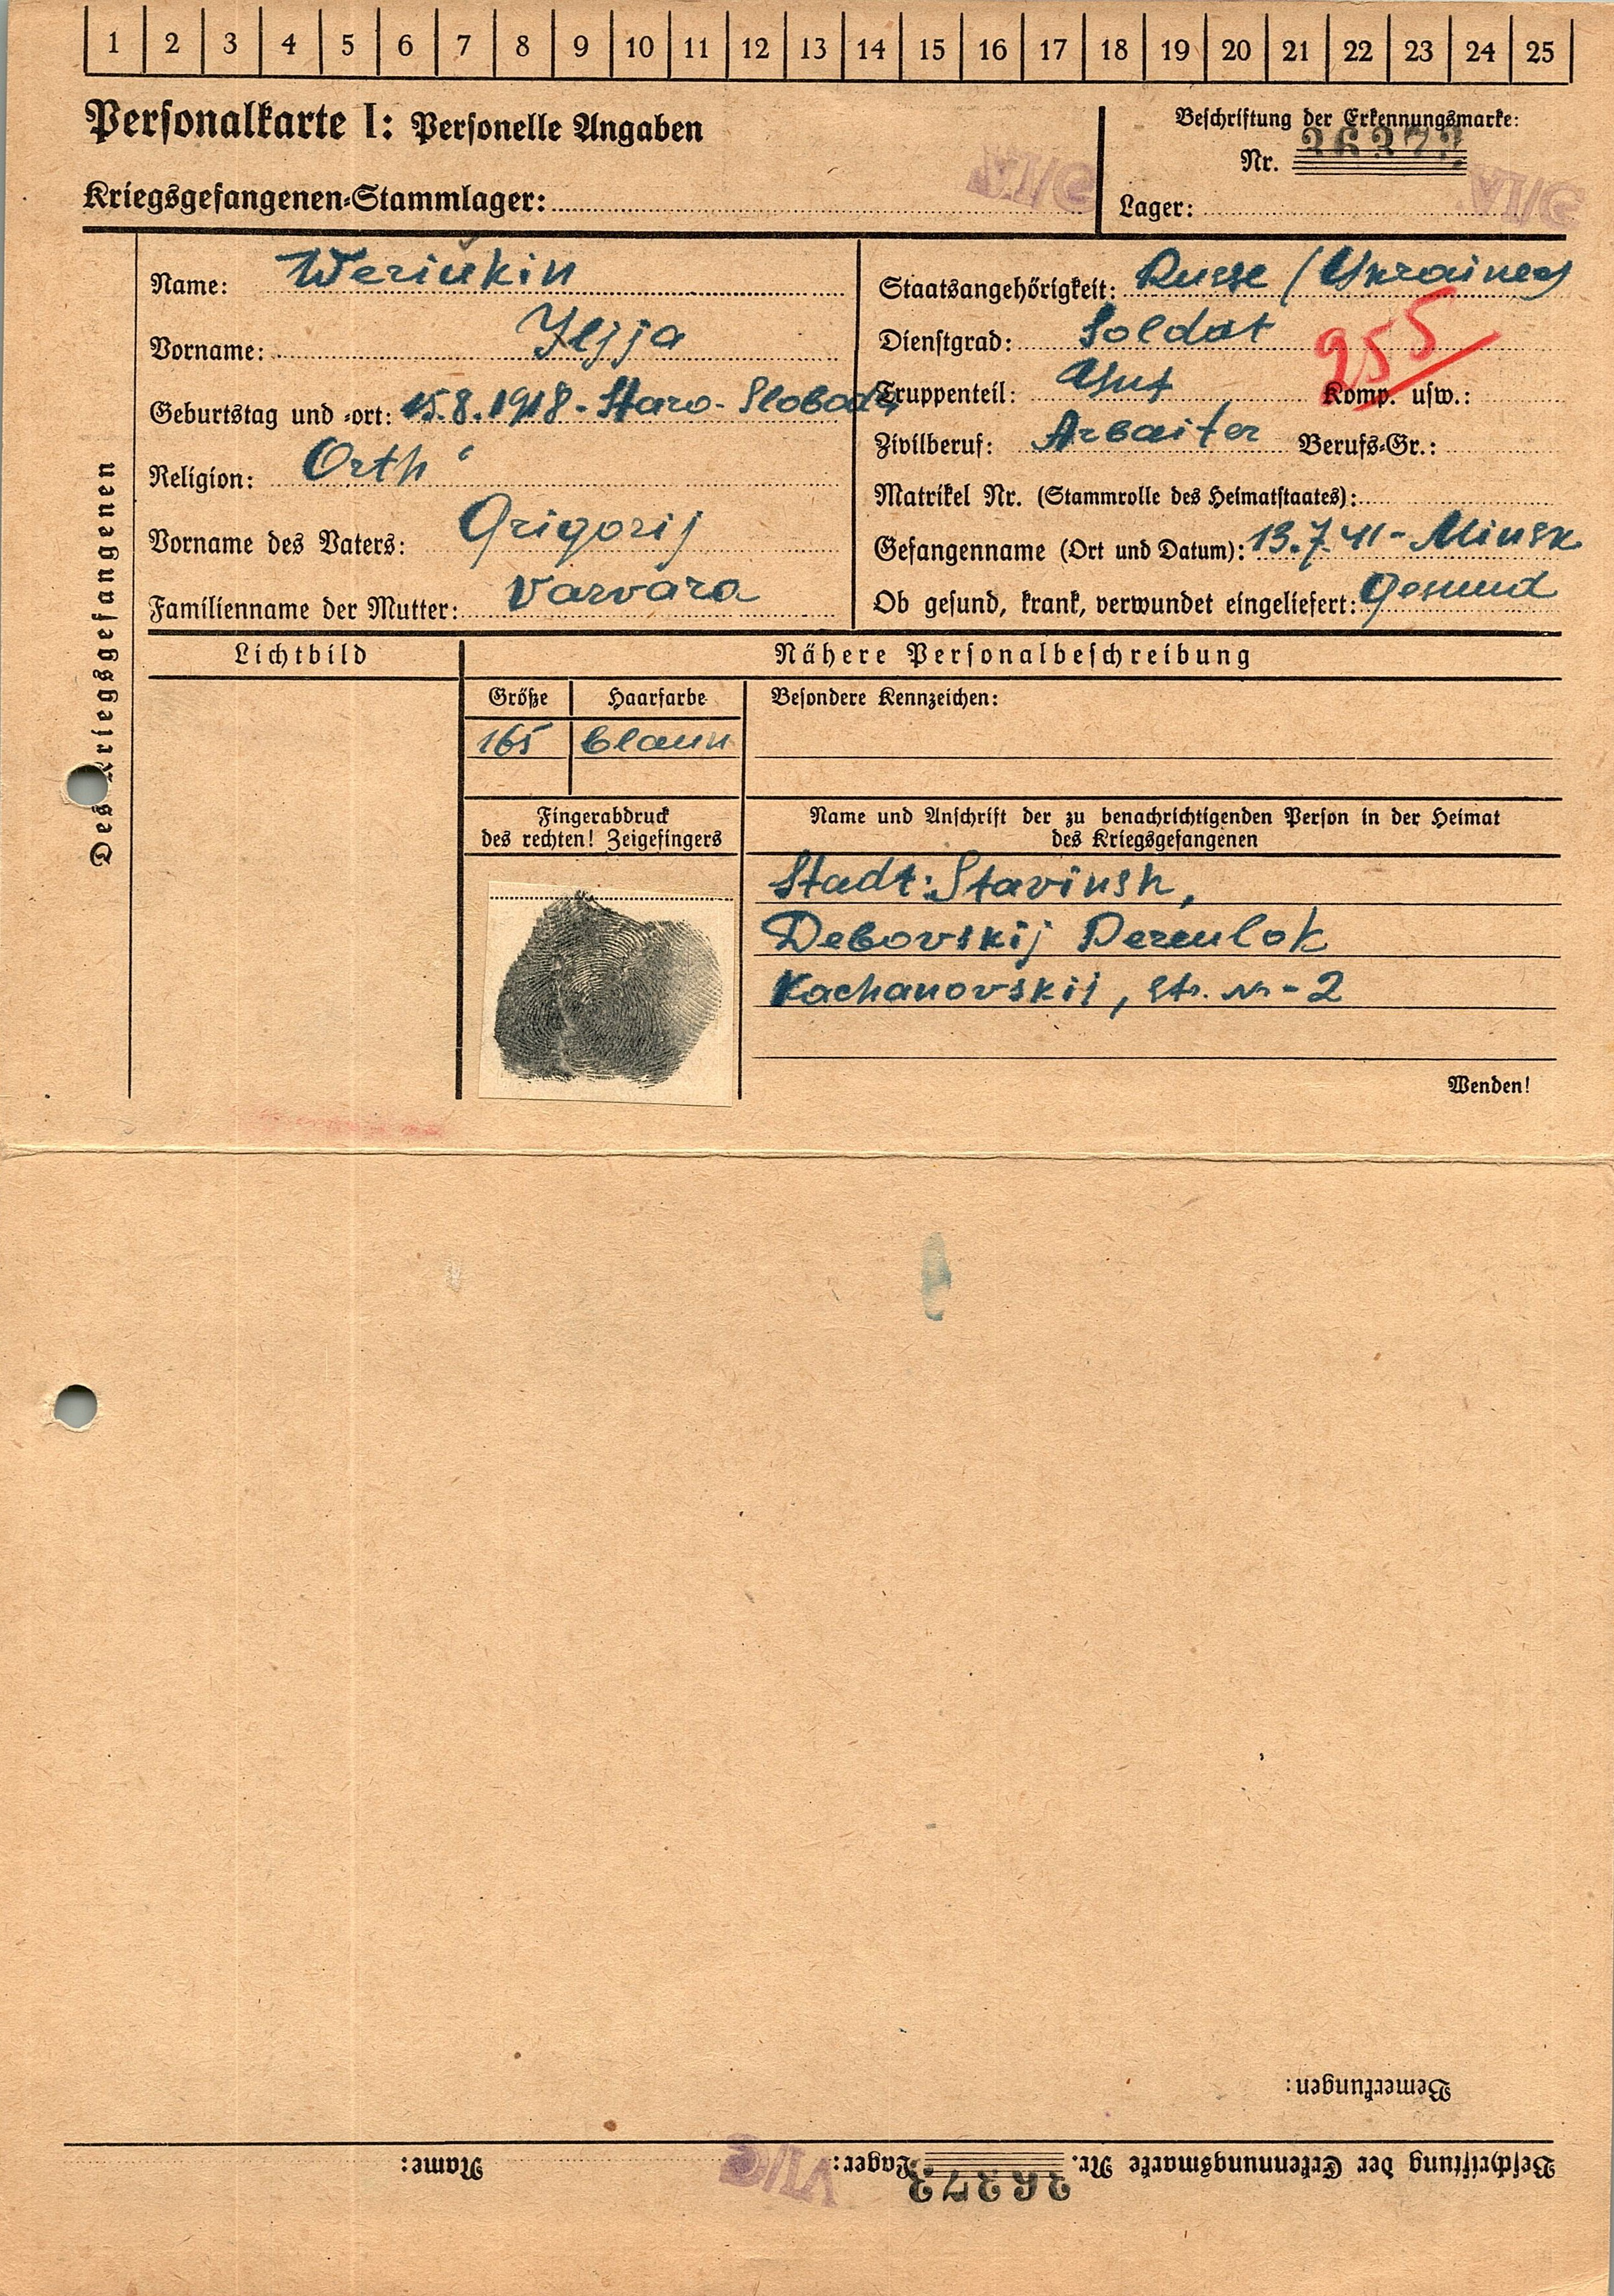 1 2 3 4 5 6 7 8 9 10 11 12 13 14 15 16 17 18 19 20 21 22 23 24 25
Personalkarte I: Personelle Angaben
Kriegsgefangenen-Stammlager: VI/G
Beschriftung der Erkennungsmarke:
Nr. 26272
Lager: VI/G
Des Kriegsgefangenen
Name: Weriukin
Vorname: Iljja
Geburtstag und -ort: 15.8.1918 - Staro-Sloboda
Religion: Orth
Vorname des Vaters: Grigorij
Familienname der Mutter: Varvara
Staatsangehörigkeit: Russe (Ukrainer)
Dienstgrad: Soldat
255
Truppenteil: Komp. usw.:
Zivilberuf: Arbaiter Berufs-Gr.:
Matrikel Nr. (Stammrolle des Heimatstaates):
Gefangenname (Ort und Datum): 13.7.41 - Minsk
Ob gesund, krank, verwundet eingeliefert: Gesund
Lichtbild
Nähere Personalbeschreibung
Größe Haarfarbe Besondere Kennzeichen:
165 blaun
Fingerabdruck
des rechten! Zeigefingers
Name und Anschrift der zu benachrichtigenden Person in der Heimat
des Kriegsgefangenen
Stadt: Stavinsk,
Debovskij Pereulok
Kachanovskij, Str. Nr - 2
Wenden!
Bemerkungen:
Beschriftung der Erkennungsmarke Nr. 26272 Lager: VI/G Name: